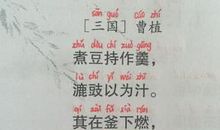 sān guó cáo zhí
[三国] 曹植
zhǔ dòu chí zuò gēng
煮豆持作羹，
lù chǐ yǐ wéi zhī
漉豉以为汁。
qí zài fǔ xià rán
萁在釜下燃，